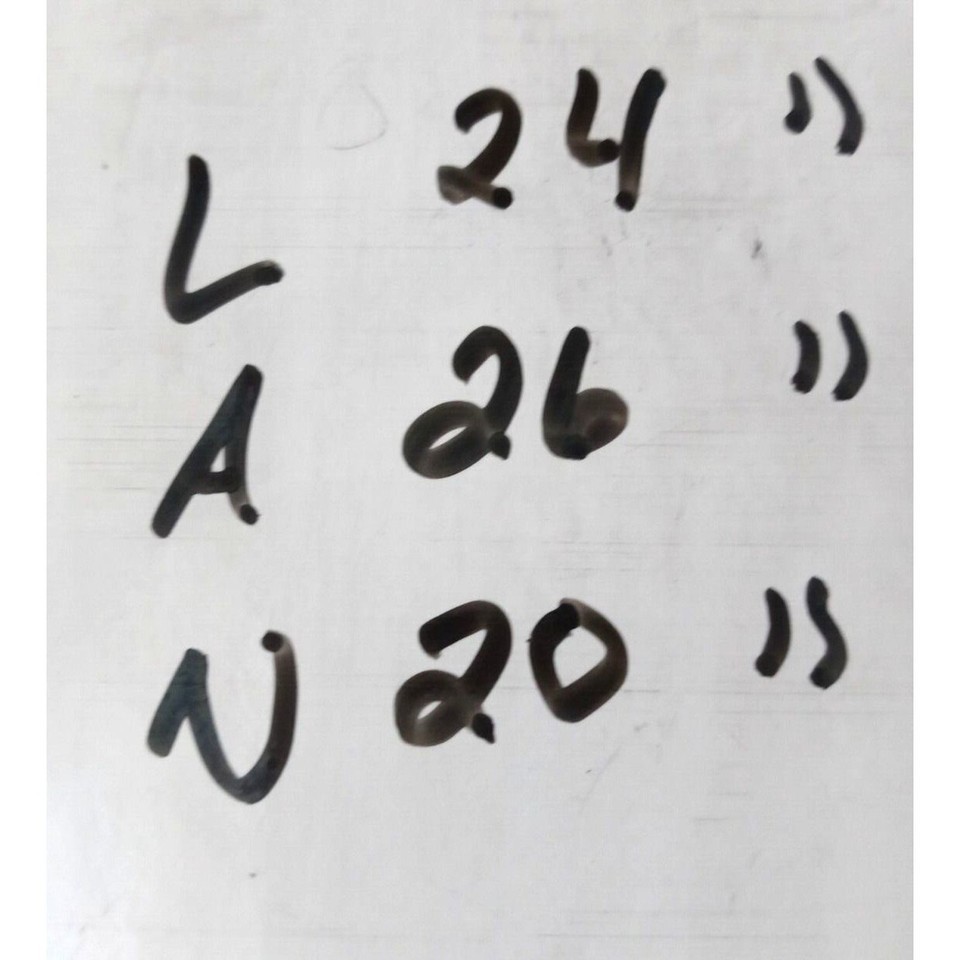 L 24 "
A 26 "
N 20 "